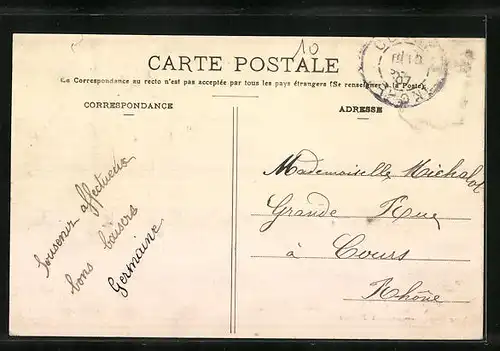 10
CARTE POSTALE
La Correspondance au recto n'est pas acceptée par tous les pays étrangers (Se renseigner à la Poste)
CORRESPONDANCE
ADRESSE
Souvenir affectueux
bons baisers
Germaine
Mademoiselle Michalot
Grande Rue
à Cours
Rhône